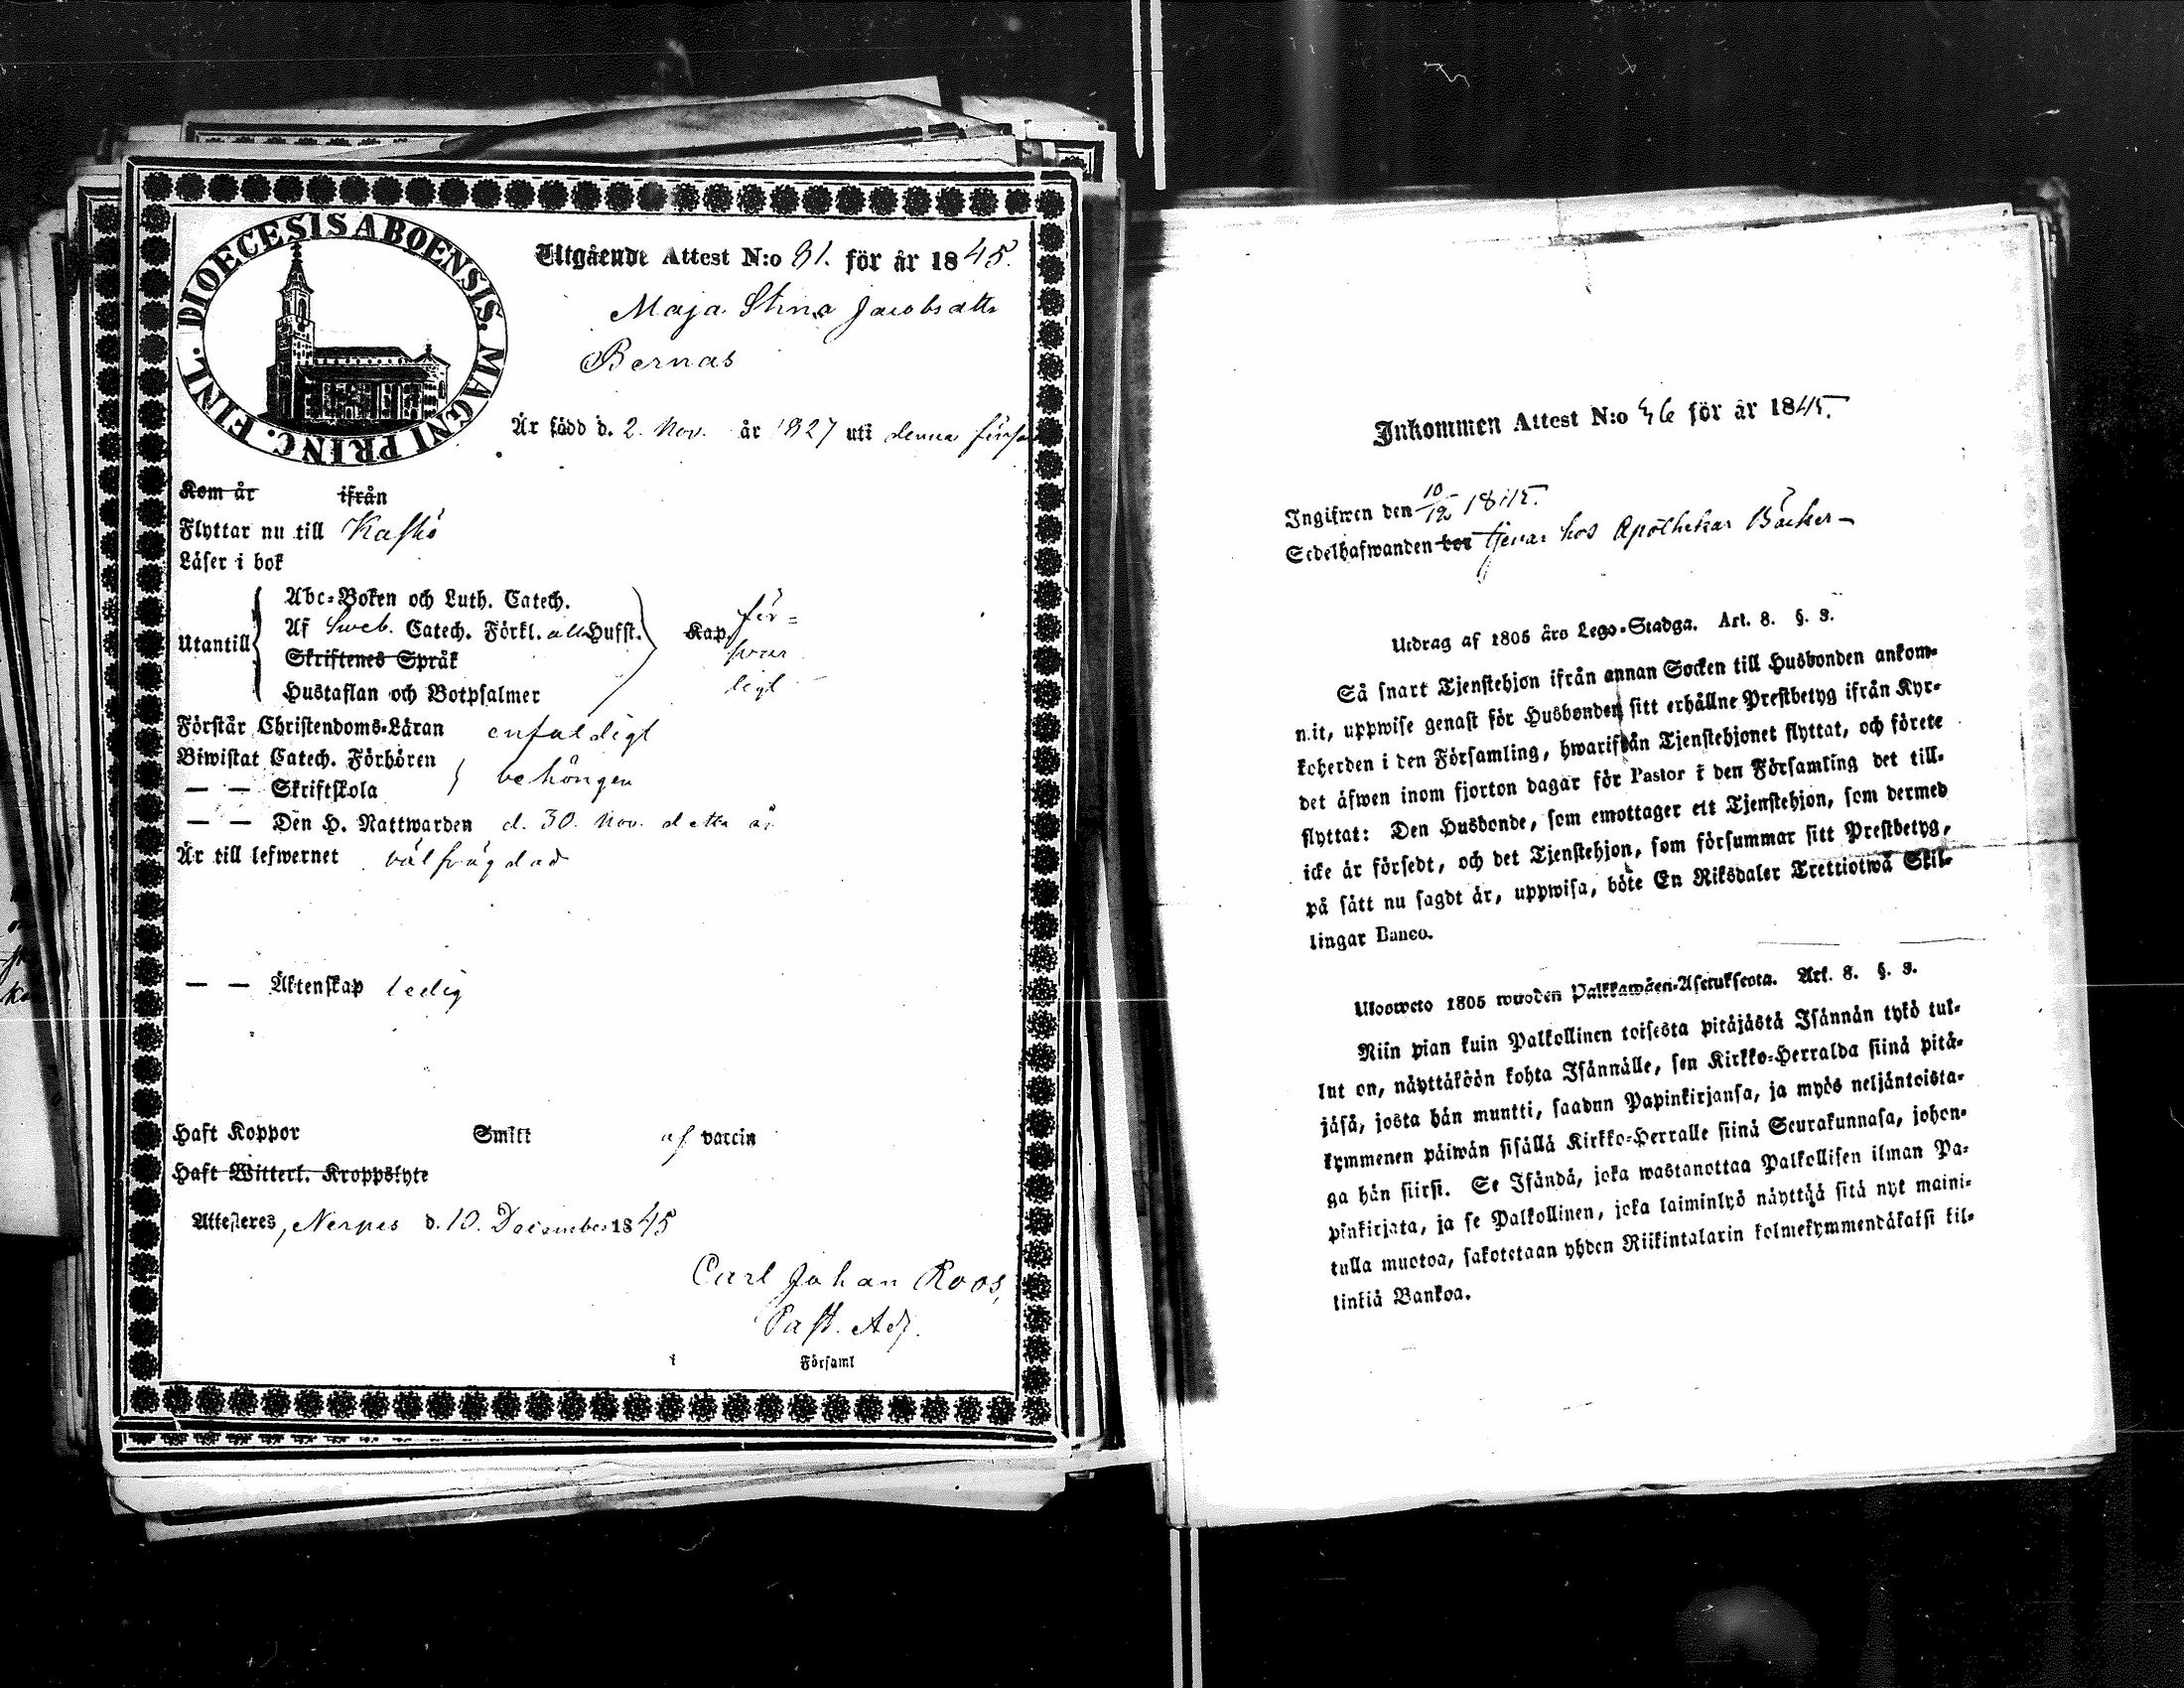 DIOECESIS ABOENSIS. MAGNI PRINC. FINL.
Utgående Attest N:o 81. för år 1845.
Maja Stina Jacobsdtr
Bernas
Är född d. 2. Nov. år 1827 uti denna förs
Kom år ifrån
Flyttar nu till Kaskö
Läser i bok
Utantill
Abc-Boken och Luth. Catech.
Af Sweb. Catech. Förkl. all Husst.
Skriftenes Språk
Hustaflan och Botpsalmer
Kap.
för=
svar
ligt
Förstår Christendoms-Läran enfaldigt
Biwistat Catech. Förhören
— — Skriftskola
behörigen
— — Den H. Nattwarden d. 30. Nov. detta år
Är till lefwernet välfrägdad
— — Äktenskap ledig
Haft Koppor Smitt af vaccin
Haft Witterl. Kroppslyte
Attesteres, Nerpes d. 10. December 1845
Carl Johan Roos,
Past. Adj.
i Församl
Inkommen Attest N:o 36 för år 1845.
Ingifwen den 10/12 1845.
Sedelhafwanden bor tjenar hos Apothekar Bäcker –
Utdrag af 1805 års Lego-Stadga. Art. 8. §. 3.
Så snart Tjenstehjon ifrån annan Socken till Husbonden ankom-
mit, uppwise genast för Husbonden sitt erhållne Prestbetyg ifrån Kyr-
koherden i den Församling, hwarifrån Tjenstehjonet flyttat, och förete
det äfwen inom fjorton dagar för Pastor i den Församling det till-
flyttat: Den Husbonde, som emottager ett Tjenstehjon, som dermed
icke är försedt, och det Tjenstehjon, som försummar sitt Prestbetyg,
på sätt nu sagdt är, uppwisa, böte En Riksdaler Trettiotwå Skil-
lingar Banco.
Ulosweto 1805 wuoden Palkkawäen-Asetuksesta. Art. 8. §. 3.
Niin pian kuin Palkollinen toisesta pitäjästä Isännän tykö tul-
lut on, näyttäköön kohta Isännälle, sen Kirkko-Herralda siinä pitä-
jäsä, josta hän muutti, saadun Papinkirjansa, ja myös neljäntoista-
kymmenen päiwän sisällä Kirkko-Herralle siinä Seurakunnasa, johon-
ga hän siirsi. Se Isändä, joka wastanottaa Palkollisen ilman Pa-
pinkirjata, ja se Palkollinen, joka laiminlyö näyttää sitä nyt maini-
tulla muotoa, sakotetaan yhden Riikintalarin kolmekymmendäkaksi kil-
linkiä Bankoa.